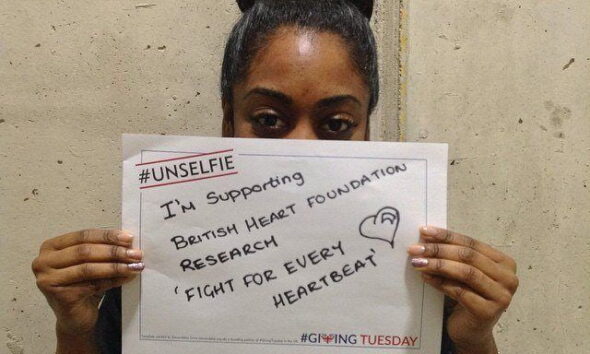 #UNSELFIE
I'm Supporting
BRITISH HEART FOUNDATION
RESEARCH
'FIGHT FOR EVERY
HEARTBEAT'
#GIVING TUESDAY